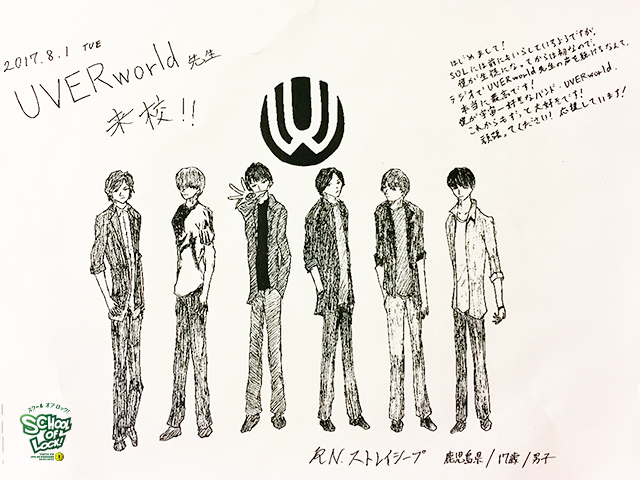 2017.8.1 TUE
UVERworld 先生
来校!!
はじめまして!
SOLには前にもいらしているようですが、
僕が生徒になってからは初なので
ラジオでUVERworld先生の声を聴けるなんて、
本当に最高です!
僕が宇宙一好きなバンド、UVERworld.
これからもずっと大好きです!
頑張ってください! 応援しています!
スクール オブ ロック!
SCHOOL
OF
LOCK!
R.N. ストレイシープ 鹿児島県/17歳/男子